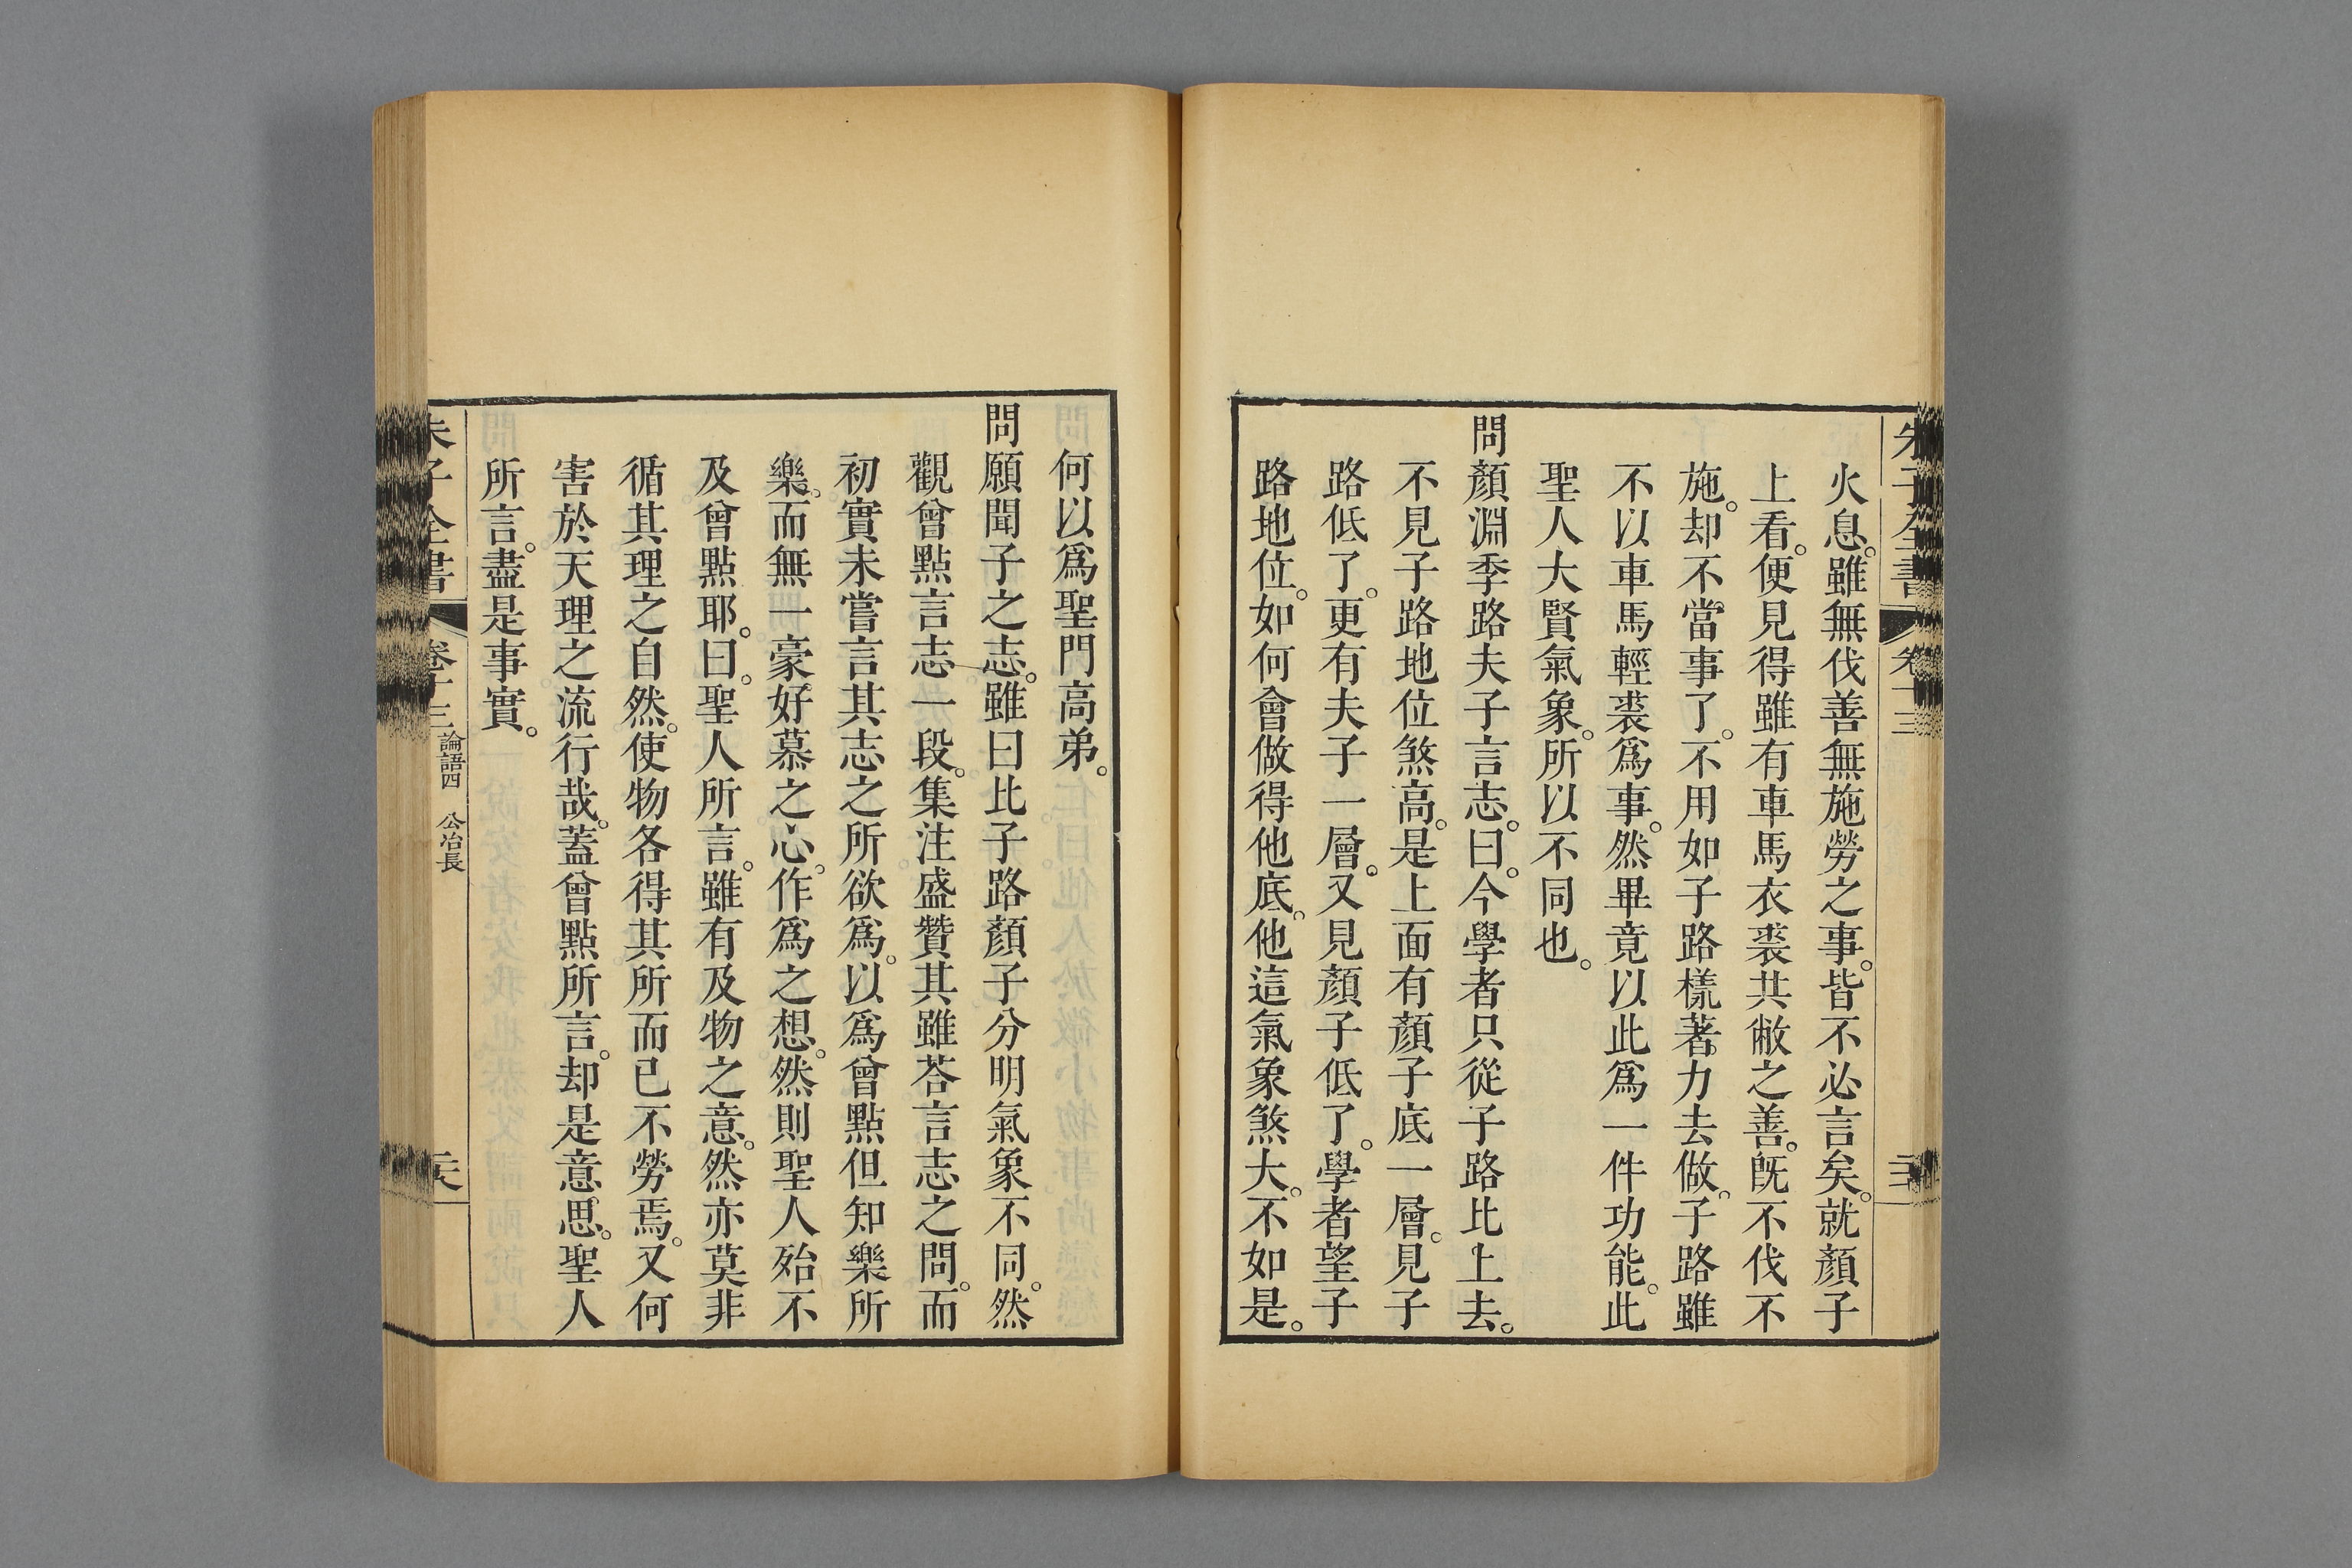 火息。雖無伐善無施勞之事。皆不必言矣。就顏子
上看。便見得雖有車馬衣裘共敝之善。旣不伐不
施。却不當事了。不用如子路樣著力去做。子路雖
不以車馬輕裘爲事。然畢竟以此爲一件功能。此
聖人大賢氣象。所以不同也。
問顏淵季路夫子言志。曰。今學者只從子路比上去。
不見子路地位煞高。是上面有顏子底一層。見子
路低了。更有夫子一層。又見顏子低了。學者望子
路地位。如何會做得他底。他這氣象煞大。不如是。
何以爲聖門高弟。
問願聞子之志。雖曰比子路顏子分明氣象不同。然
觀曾點言志一段。集注盛贊其雖荅言志之問。而
初實未嘗言其志之所欲爲。以爲曾點但知樂所
樂。而無一豪好慕之心。作爲之想。然則聖人殆不
及曾點耶。曰。聖人所言。雖有及物之意。然亦莫非
循其理之自然。使物各得其所而已不勞焉。又何
害於天理之流行哉。蓋曾點所言。却是意思。聖人
所言。盡是事實。
朱子全書
卷十三
論語四 公冶長